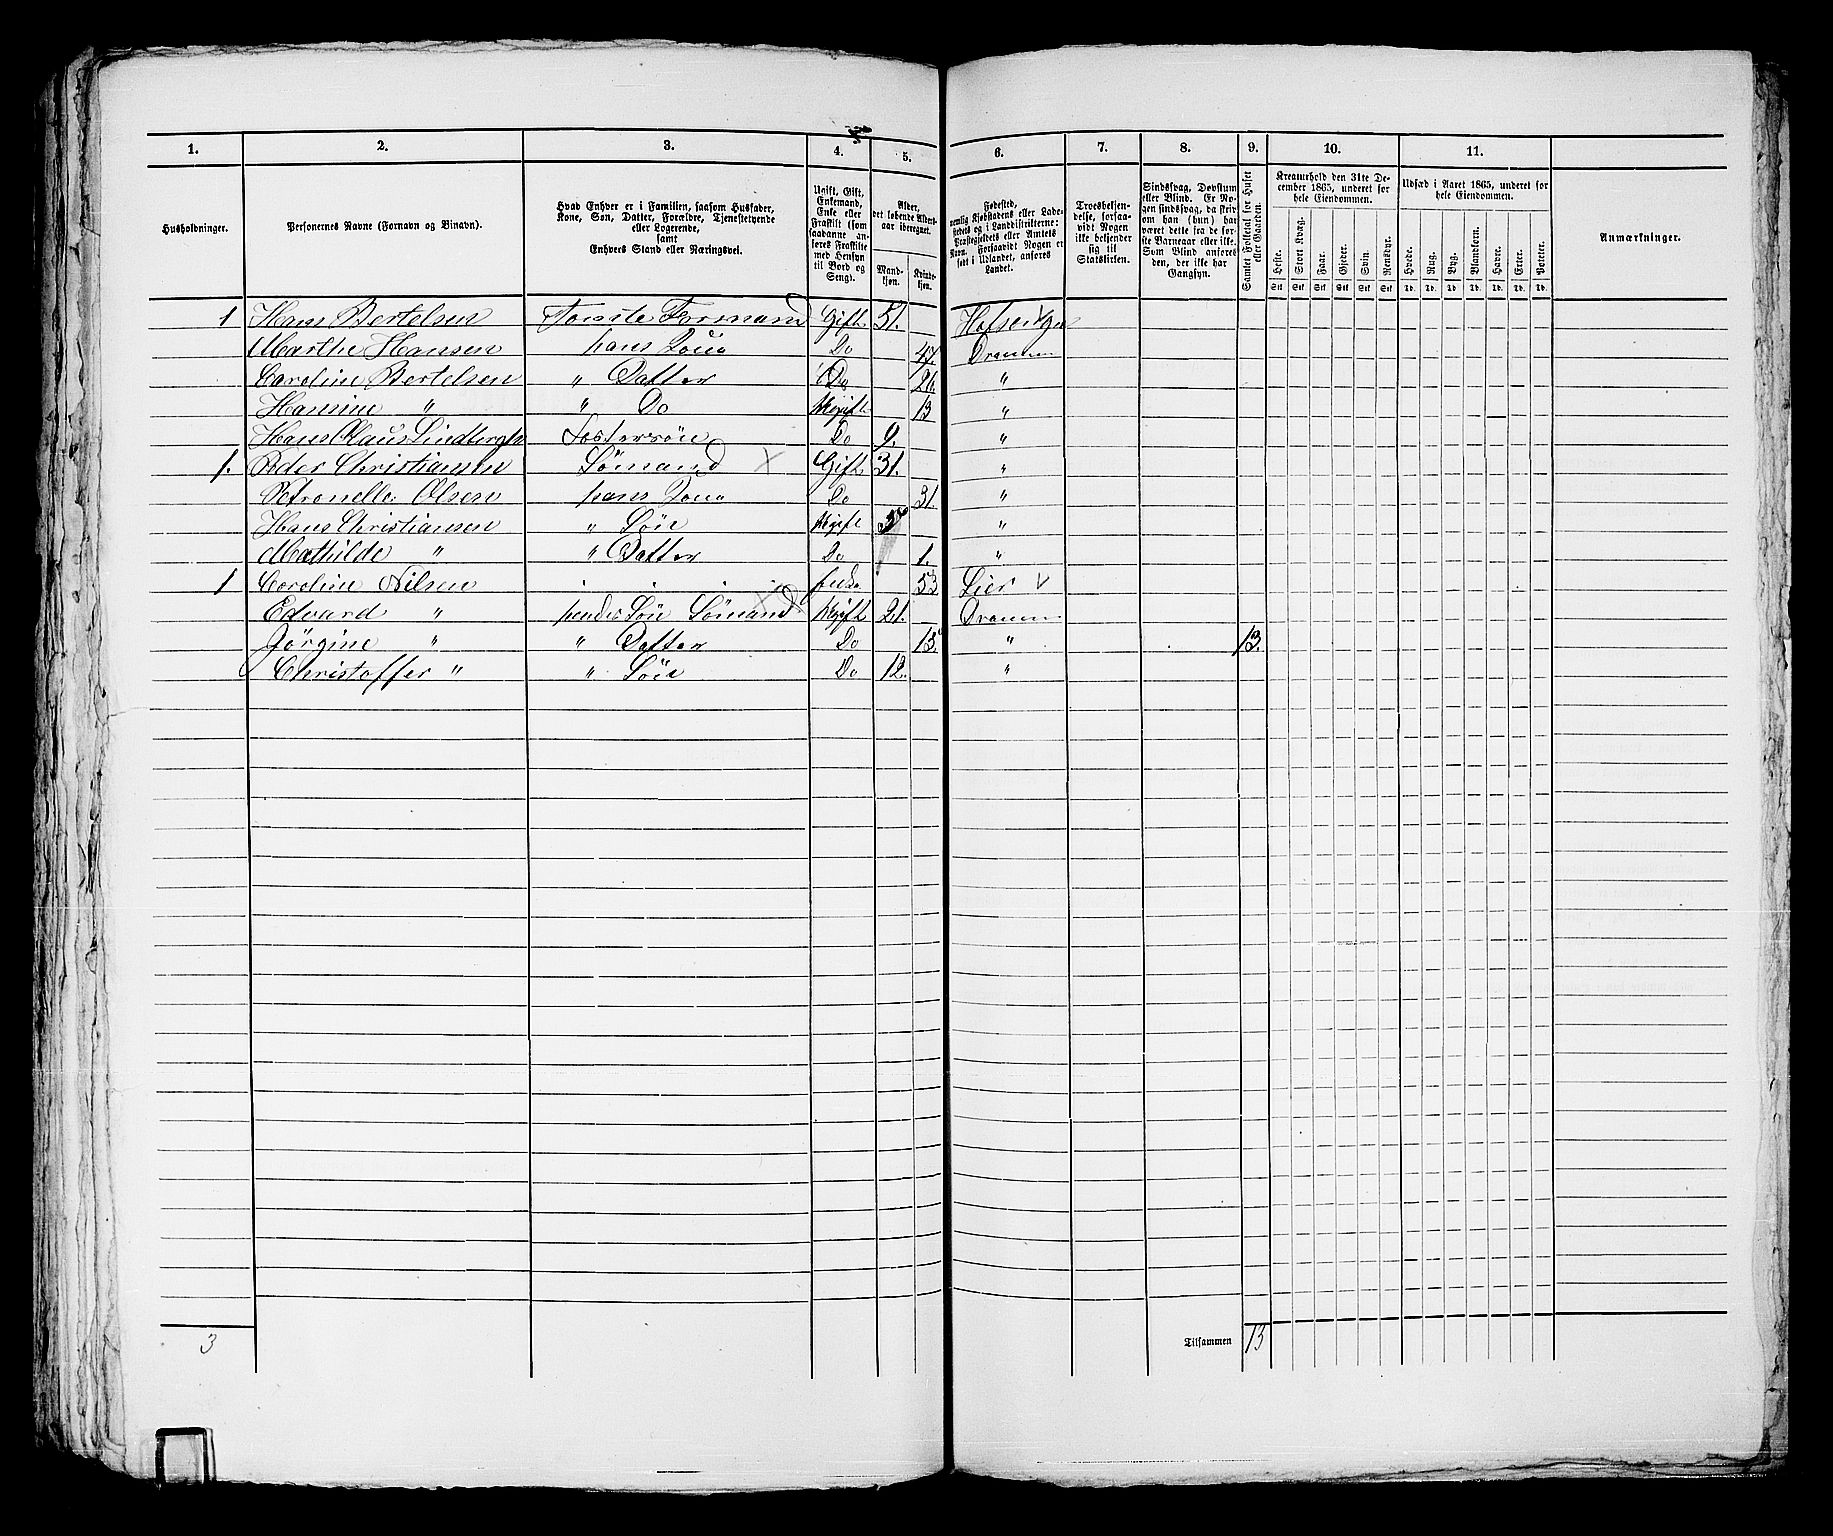 1. 2. 3. 4. 5. 6. 7. 8. 9. 10. 11.
Husholdninger.
Personernes Navne (Fornavn og Binavn).
Hvad Enhver er i Familien, saasom Husfader, Kone, Søn, Datter, Forældre, Tjenestetyende eller Logerende, samt Enhvers Stand eller Næringsvei.
Ugift, Gift, Enkemand, Enke eller Fraskilt (som saadanne anføres Fraskilte med Hensyn til Bord og Seng).
Alder, det løbende Aldersaar iberegnet.
Mandkjøn. Kvindekjøn.
Fødested, nemlig Kjøbstadens eller Ladestedets og i Landdistrikterne: Præstegjeldets eller Amtets Navn. Forsaavidt Nogen er født i Udlandet, anføres Landet.
Troesbekjendelse, forsaavidt Nogen ikke bekjender sig til Statskirken.
Sindssvag, Døvstum eller Blind. Er Nogen sindssvag, da skrives om han (hun) har været dette fra de første Barneaar eller ikke. Som Blind anføres den, der ikke har Gangsyn.
Samlet Folketal for Huset eller Gaarden.
Kreaturhold den 31te December 1865, underet for hele Eiendommen.
Heste. Stort Kvæg. Faar. Gjeder. Svin. Rensdyr.
Stk Stk Stk Stk Stk Stk
Udsæd i Aaret 1865, underet for hele Eiendommen.
Hvede. Rug. Byg. Blandkorn. Havre. Erter. Poteter.
Td. Td. Td. Td. Td. Td. Td.
Anmærkninger.
1 Hans Bertelsen Tomste Formand Gift 51.
Marthe Hansen hans Kone Do 47. Drammen
Caroline Bertelsen " Datter Do 26. "
Hansine " " Do Ugift 13 "
Hans Claus Lindbergh Søstersøn Do 9. "
1. Peder Christiansen Sømand Gift 31. "
Petronelle Olsen hans Kone Do 31. "
Hans Christiansen " Søn Ugift 3 "
Mathilde " " Datter Do 1. "
1 Caroline Nilsen Enke 53 Lier
Edvard " hendes Søn Sømand Ugift 21. Drammen
Jørgine " " Datter Do 13. " 13.
Christoffer " " Søn Do 12. "
3 Tilsammen 13